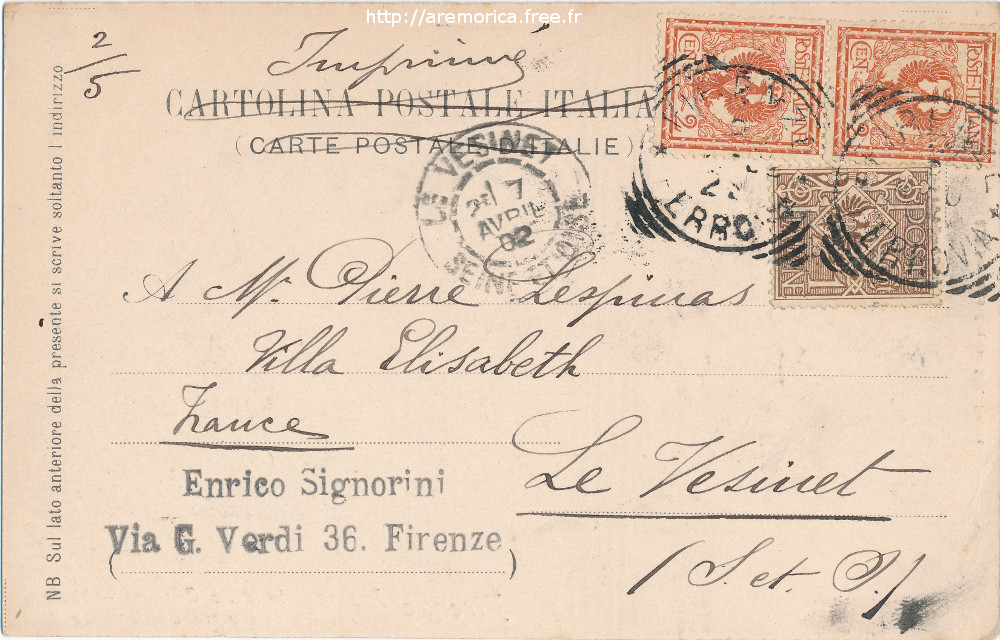 http://aremorica.free.fr
2/5
Imprimé
CARTOLINA POSTALE ITALIA
(CARTE POSTALE D'ITALIE)
LE VESINET
7
AVRIL
02
SEINE ET OISE
POSTE ITALIANE
CENT. 2
POSTE ITALIANE
CENT. 2
FERROVIA
FERROVIA
A Mr Pierre Lespinas
Villa Elisabeth
France
Le Vesinet
(S. et O.)
Enrico Signorini
Via G. Verdi 36. Firenze
NB Sul lato anteriore della presente si scrive soltanto l'indirizzo